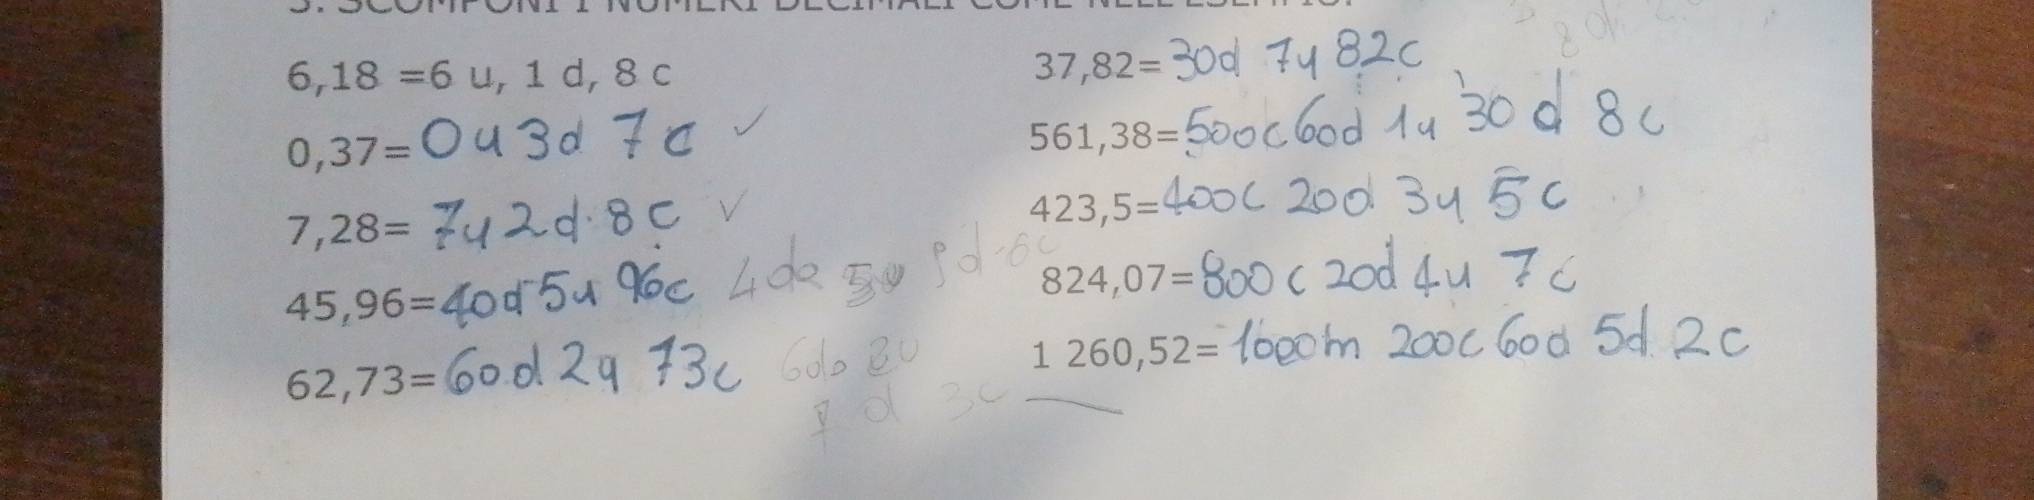 3. SCOMPONI I NUMERI DECIMALI COME NELL'ESEMPIO:
6,18 =6 u, 1 d, 8 c
0,37= 0u 3d 7c ✓
7,28= 7u 2d 8c ✓
45,96= 40d 5u 96c 4da 5u 9d 6c
62,73= 60d 2u 73c 6da 2u
7 d 3c
8 d 2
37,82= 30d 7u 82c
561,38= 500c 60d 1u 30d 8c
423,5= 400c 20d 3u 5c
824,07= 800c 20d 4u 7c
1 260,52= 1000m 200c 60d 5d 2c